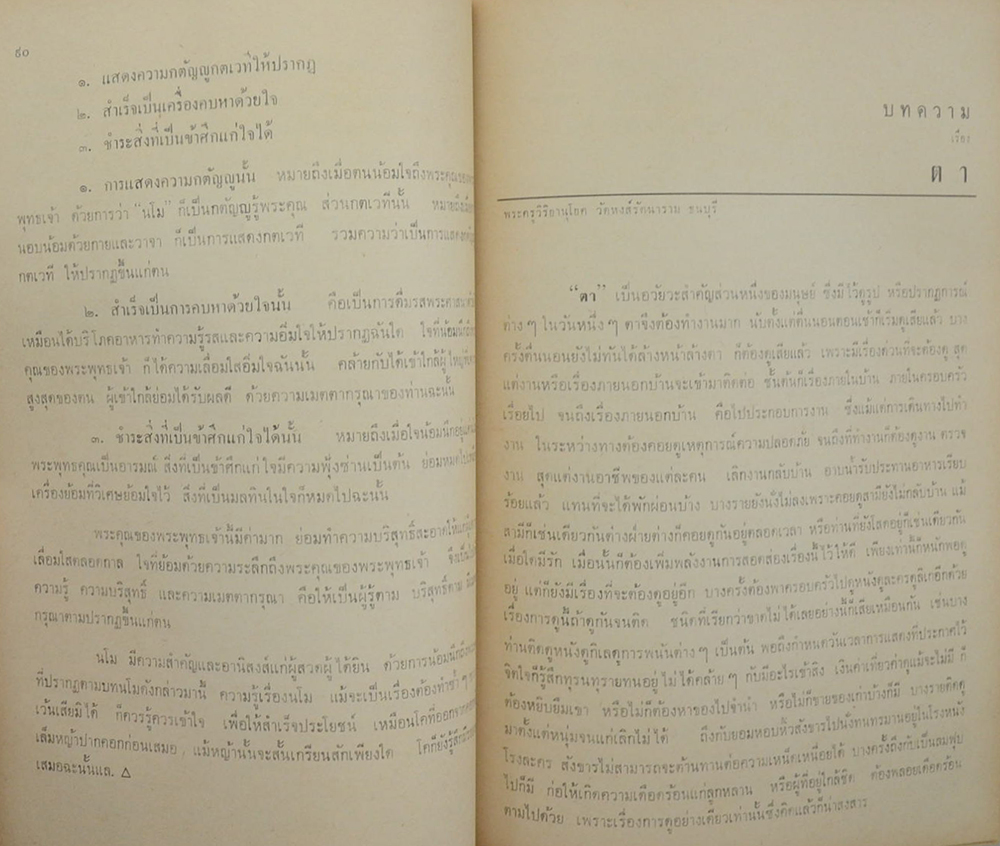 ๙๐
๑. แสดงความกตัญญูกตเวทีให้ปรากฏ
๒. สำเร็จเป็นเครื่องคบหาด้วยใจ
๓. ชำระสิ่งที่เป็นข้าศึกแก่ใจได้
๑. การแสดงความกตัญญูนั้น หมายถึงเมื่อตนน้อมใจถึงพระคุณของ
พุทธเจ้า ด้วยการว่า “นโม” ก็เป็นกตัญญูรู้พระคุณ ส่วนกตเวทีนั้น หมายถึง
นอบน้อมด้วยกายและวาจา ก็เป็นการแสดงกตเวที รวมความว่าเป็นการแสดง
กตเวที ให้ปรากฏขึ้นแก่ตน
๒. สำเร็จเป็นการคบหาด้วยใจนั้น คือเป็นการดื่มรสพระ
เหมือนได้บริโภคอาหารทำความรู้รสและความอิ่มใจให้ปรากฏฉันใด ใจที่น้อม
คุณของพระพุทธเจ้า ก็ได้ความเลื่อมใสอิ่มใจฉันนั้น คล้ายกับได้เข้าใกล้ผู้ใหญ่
สูงสุดของตน ผู้เข้าใกล้ย่อมได้รับผลดี ด้วยความเมตตากรุณาของท่านฉะนั้น
๓. ชำระสิ่งที่เป็นข้าศึกแก่ใจได้นั้น หมายถึงเมื่อใจน้อมนึก
พระพุทธคุณเป็นอารมณ์ สิ่งที่เป็นข้าศึกแก่ใจมีความฟุ้งซ่านเป็นต้น ย่อมหมดไป
เครื่องย้อมที่วิเศษย้อมใจไว้ สิ่งที่เป็นมลทินในใจก็หมดไปฉะนั้น
พระคุณของพระพุทธเจ้านี้มีค่ามาก ย่อมทำความบริสุทธิ์สะอาดให้แก่
เลื่อมใสตลอดกาล ใจที่ย้อมด้วยความระลึกถึงพระคุณของพระพุทธเจ้า จึงเป็น
ความรู้ ความบริสุทธิ์ และความเมตตากรุณา คือให้เป็นผู้รู้ตาม บริสุทธิ์ตาม
กรุณาตามปรากฏขึ้นแก่ตน
นโม มีความสำคัญและอานิสงส์แก่ผู้สวดผู้ได้ยิน ด้วยการน้อมนึกถึง
ที่ปรากฏตามบทนโมดังกล่าวมานี้ ความรู้เรื่องนโม แม้จะเป็นเรื่องต้องทำซ้ำ ๆ
เว้นเสียมิได้ ก็ควรรู้ควรเข้าใจ เพื่อให้สำเร็จประโยชน์ เหมือนโคที่ออกจาก
เล็มหญ้าปากคอกก่อนเสมอ, แม้หญ้านั้นจะสั้นเกรียนสักเพียงใด โคก็ยังรู้สึก
เสมอฉะนั้นแล. △
บทความ
เรื่อง
ตา
พระครูวิริยานุโยค วัดหงส์รัตนาราม ธนบุรี
“ตา” เป็นอวัยวะสำคัญส่วนหนึ่งของมนุษย์ ซึ่งมีไว้ดูรูป หรือปรากฏการณ์
ต่าง ๆ ในวันหนึ่ง ๆ ตาจึงต้องทำงานมาก นับตั้งแต่ตื่นนอนตอนเช้าก็เริ่มดูเสียแล้ว บาง
ครั้งตื่นนอนยังไม่ทันได้ล้างหน้าล้างตา ก็ต้องดูเสียแล้ว เพราะมีเรื่องด่วนที่จะต้องดู สุด
แต่งานหรือเรื่องภายนอกบ้านจะเข้ามาติดต่อ ชั้นต้นก็เรื่องภายในบ้าน ภายในครอบครัว
เรื่อยไป จนถึงเรื่องภายนอกบ้าน คือไปประกอบการงาน ซึ่งแม้แต่การเดินทางไปทำ
งาน ในระหว่างทางต้องคอยดูเหตุการณ์ความปลอดภัย จนถึงที่ทำงานก็ต้องดูงาน ตรวจ
งาน สุดแต่งานอาชีพของแต่ละคน เลิกงานกลับบ้าน อาบน้ำรับประทานอาหารเรียบ
ร้อยแล้ว แทนที่จะได้พักผ่อนบ้าง บางรายยังนั่งไม่ลงเพราะคอยดูสามียังไม่กลับบ้าน แม้
สามีก็เช่นเดียวกันต่างฝ่ายต่างก็คอยดูกันอยู่ตลอดเวลา หรือท่านที่ยังโสดอยู่ก็เช่นเดียวกัน
เมื่อใดมีรัก เมื่อนั้นก็ต้องเพิ่มพลังงานการสอดส่องเรื่องนี้ไว้ให้ดี เพียงเท่านี้ก็หนักพอดู
อยู่ แต่ก็ยังมีเรื่องที่จะต้องดูอยู่อีก บางครั้งต้องพาครอบครัวไปดูหนังดูละครดูลิเกอีกด้วย
เรื่องการดูนี้ถ้าดูกันจนติด ชนิดที่เรียกว่าขาดไม่ได้เลยอย่างนี้ก็เสียเหมือนกัน เช่นบาง
ท่านติดดูหนังดูกิเลดูการพนันต่าง ๆ เป็นต้น พอถึงกำหนดวันเวลาการแสดงที่ประกาศไว้
จิตใจก็รู้สึกทุรนทุรายทนอยู่ไม่ได้คล้าย ๆ กับมีอะไรเข้าสิง เงินค่าเที่ยวค่าดูแม้จะไม่มี ก็
ต้องหยิบยืมเขา หรือไม่ก็ต้องหาของไปจำนำ หรือไม่ก็ขายของเก่าบ้างก็มี บางรายติดดู
มาตั้งแต่หนุ่มจนแก่เลิกไม่ได้ ถึงกับยอมหอบหิ้วสังขารไปนั่งทนทรมานอยู่ในโรงหนัง
โรงละคร สังขารไม่สามารถจะต้านทานต่อความเหน็ดเหนื่อยได้ บางครั้งถึงกับเป็นลมฟุบ
ไปก็มี ก่อให้เกิดความเดือดร้อนแก่ลูกหลาน หรือผู้ที่อยู่ใกล้ชิด ต้องพลอยเดือดร้อน
ตามไปด้วย เพราะเรื่องการดูอย่างเดียวเท่านั้นซึ่งคิดแล้วก็น่าสงสาร